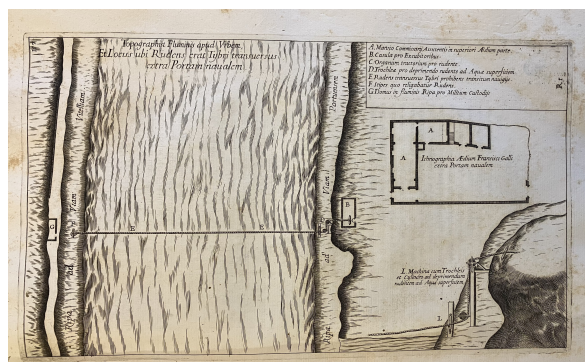 Topographia Fluminis apud Urbem
Et Locus ubi Rudens erat Tybri transversus
extra Portam navalem
A. Mansio Commissarij Assistentis in superiori Ædium parte
B. Casula pro Excubitoribus
C. Organum tractorium pro rudente
D. Trochlea pro deprimendo rudente ad Aquæ superficiem
E. Rudens transversus Tybri prohibens transitum navigijs
F. Stipes quo religabatur Rudens
G. Domus in fluminis Ripa pro Militum Custodijs
A
A
Ichnographia Ædium Francisci Galli
extra Portam navalem
B
G
E
E
Ripa
ad
Viam
Ripa
ad
Viam
Portuensem
I. Machina cum Trochleis
et Cylindro ad deprimendum
rudentem ad Aquæ superficiem
I.